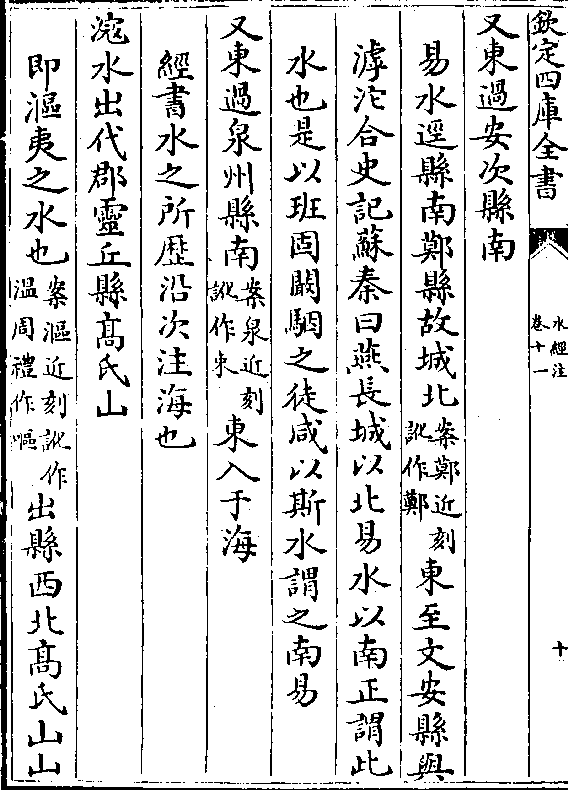 欽定四庫全書
水經注
卷十一
十
又東過安次縣南
易水逕縣南鄭縣故城北案鄭近刻訛作鄚東至文安縣與
滹沱合史記蘇秦曰燕長城以北易水以南正謂此
水也是以班固闞駰之徒咸以斯水謂之南易
又東過泉州縣南案泉近刻訛作東入于海
經書水之所歷沿次注海也
滱水出代郡靈丘縣髙氏山
即漚夷之水也案漚近刻訛作温周禮作嘔出縣西北髙氏山山